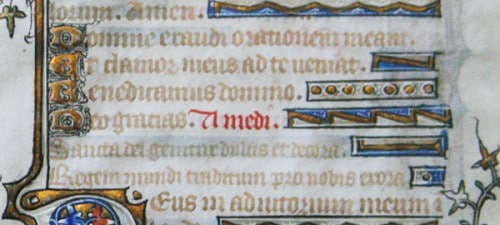 lorum. Amen.
Domine exaudi orationem meam.
Et clamor meus ad te veniat.
Benedicamus domino.
Deo gracias. A medi.
Sancta dei genitrix dulcis et decora.
Regem mundi traditum pro nobis exora
Deus in adiutorium meum i